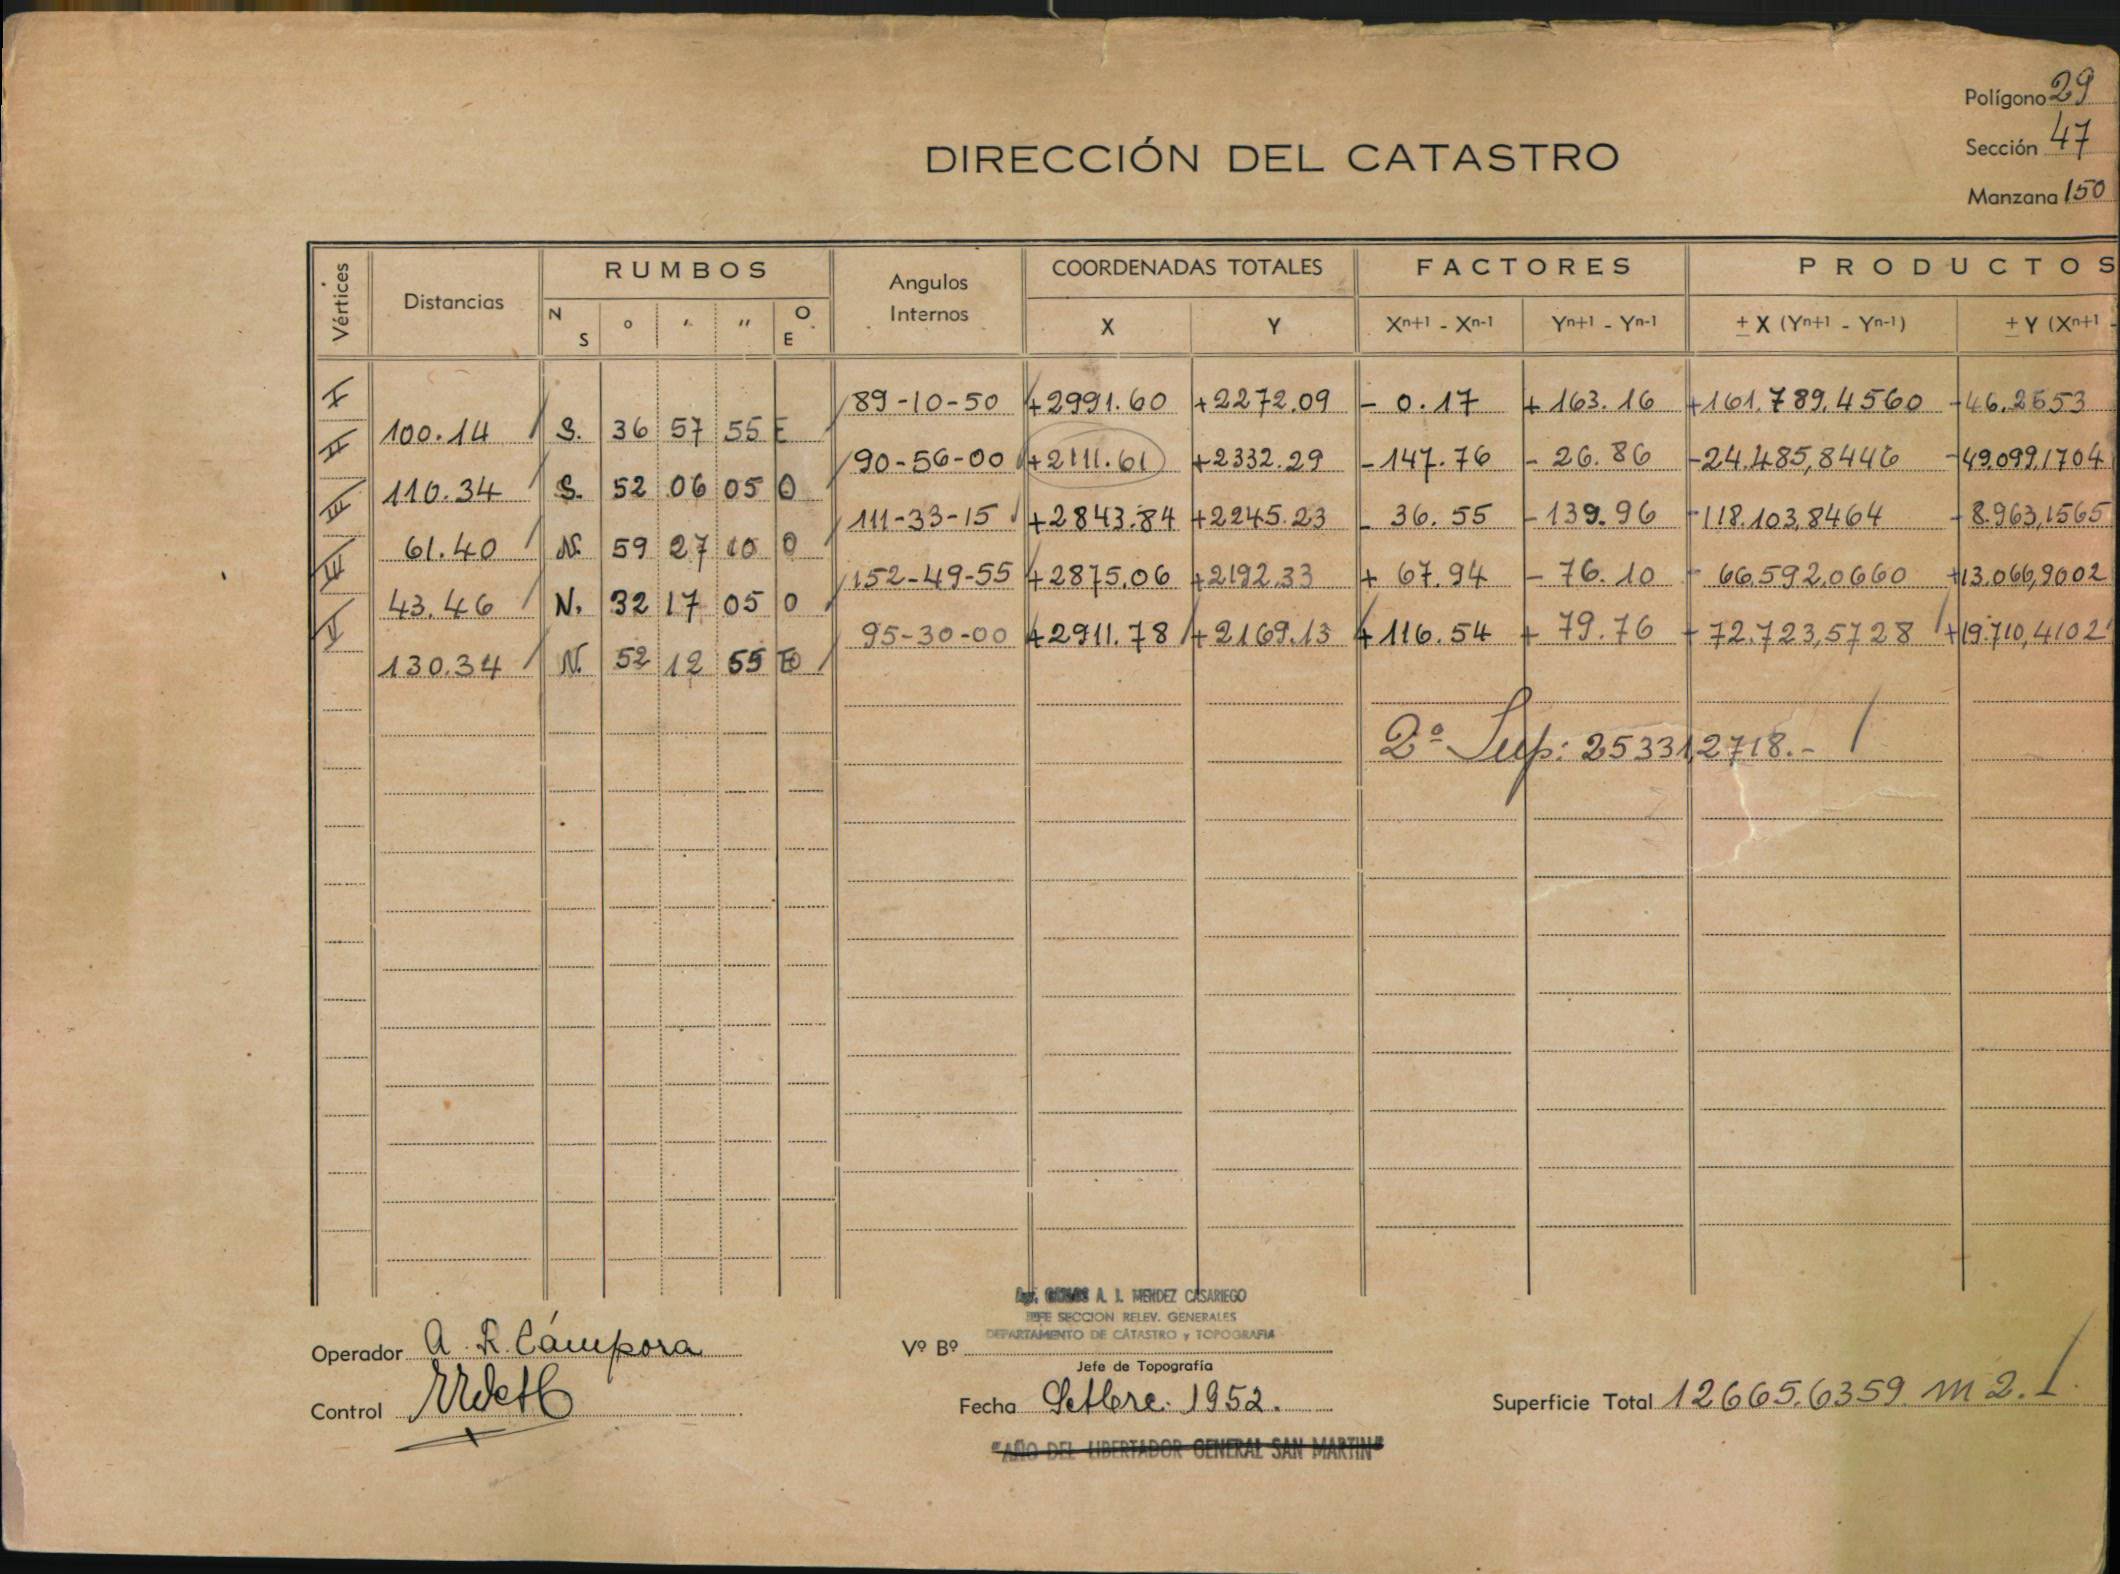 Polígono 29
Sección 47
Manzana 150
DIRECCIÓN DEL CATASTRO
Vértices Distancias RUMBOS Angulos Internos COORDENADAS TOTALES FACTORES PRODUCTOS
N S ° ′ ″ O E X Y Xn+1 - Xn-1 Yn+1 - Yn-1 ± X (Yn+1 - Yn-1) ± Y (Xn+1 -
I 89-10-50 +2991.60 +2272.09 - 0.17 + 163.16 +161.789,4560 -46.2553
100.14 S. 36 57 55 E
II 90-56-00 +2111.61 +2332.29 -147.76 - 26.86 -24.485,8446 -49.099,1704
110.34 S. 52 06 05 O
III 111-33-15 +2843.84 +2245.23 - 36.55 -139.96 -118.103,8464 - 8.963,1565
61.40 N. 59 27 10 O
IIII 152-49-55 +2875.06 +2192.33 + 67.94 - 76.10 - 66.592,0660 +13.066,9002
43.46 N. 32 17 05 O
V 95-30-00 +2911.78 +2169.13 +116.54 + 79.76 + 72.723,5728 +19.710,4102
130.34 N. 52 12 55 E
2º Sup: 25331,2718.-
A. I. MENDEZ CASARIEGO
JEFE SECCION RELEV. GENERALES
DEPARTAMENTO DE CATASTRO y TOPOGRAFIA
Operador A. R. Cámpora
Vº Bº
Jefe de Topografía
Control
Fecha Setbre. 1952.
Superficie Total 12665.6359 m2.
"AÑO DEL LIBERTADOR GENERAL SAN MARTIN"